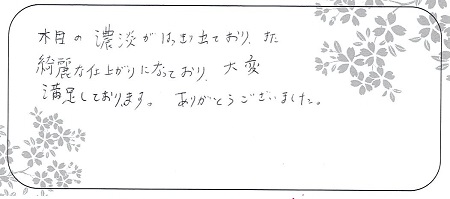 木目の濃淡がはっきり出ており、また
綺麗な仕上がりになっており、大変
満足しております。ありがとうございました。